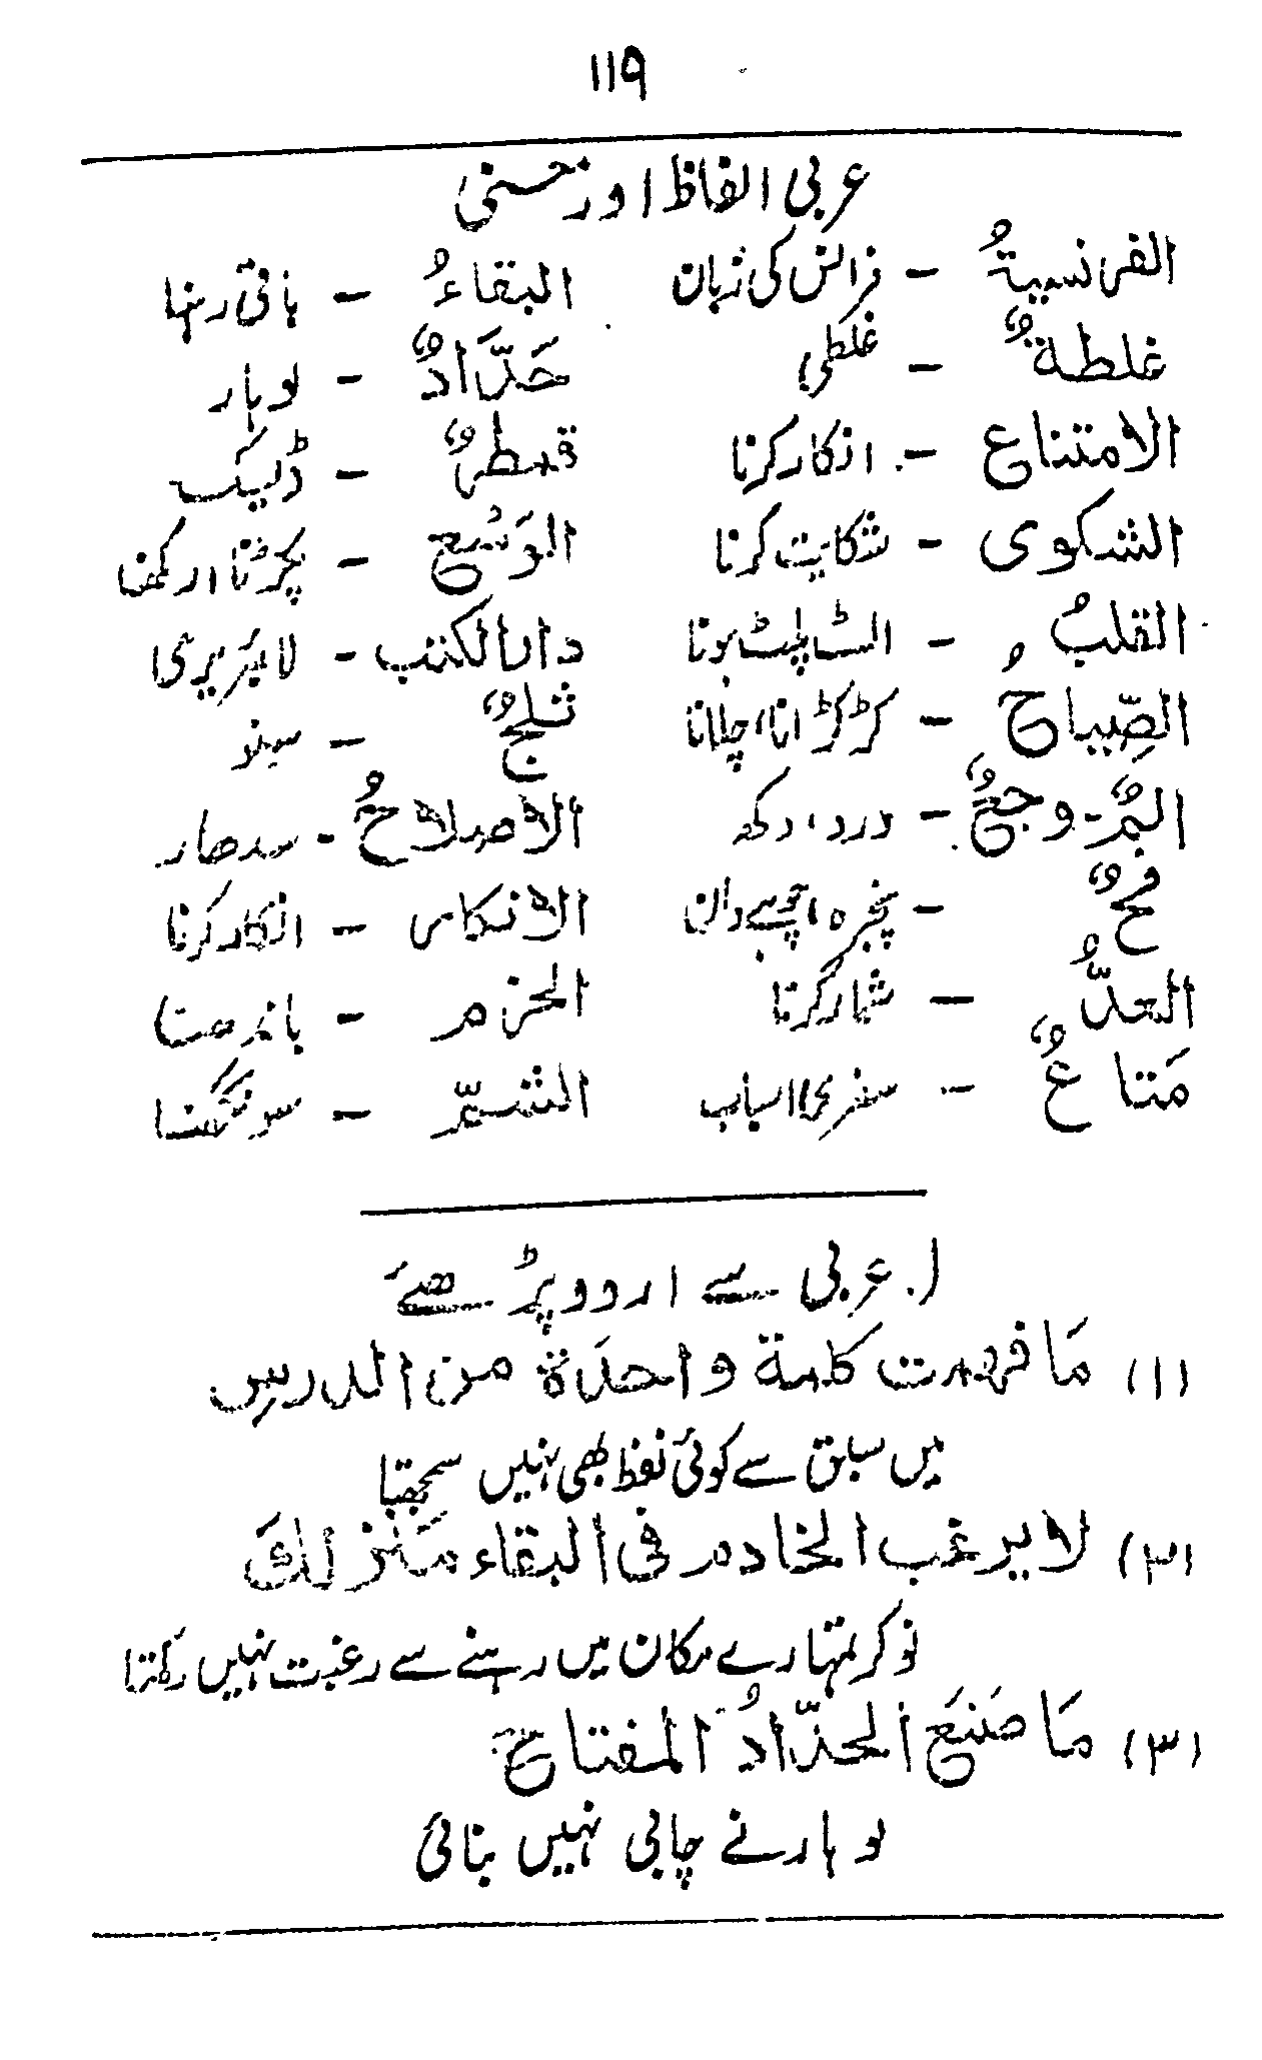 ۱۱۹
عربی الفاظ اور معنی
الفرنسیۃُ – فرانس کی زبان البقاءُ – باقی رہنا
غلطۃٌ – غلطی حَدَّادٌ – لوہار
الامتناع – انکار کرنا قمطرٌ – ڈیسک
الشکوی – شکایت کرنا الوَضُع – پکڑنا، رکھنا
القلبُ – الٹ پلٹ ہونا دارالکتب – لائبریری
الصِّیاحُ – کڑکڑانا، چلانا ثلجٌ – سنو
المٌ - وجعٌ – درد، دکھ الاصلاحُ - سدھار
فخٌ – پنجرہ، چوہے دان الانکار – انکار کرنا
العدُّ – شمار کرنا الحزم – باندھنا
مَتاعٌ – سفری اسباب الشمّ – سونگھنا
۱. عربی سے اردو پڑھئے
(۱) مَا فہمت کلمة واحدَة من الدرسِ
میں سبق سے کوئی لفظ بھی نہیں سمجھتا
(۲) لا یرغب الخادم فی البقاء مَنزلكَ
نوکر تمہارے مکان میں رہنے سے رغبت نہیں رکھتا
(۳) مَا صَنَعَ الحدّادُ المفتاحَ
لوہار نے چابی نہیں بنائی